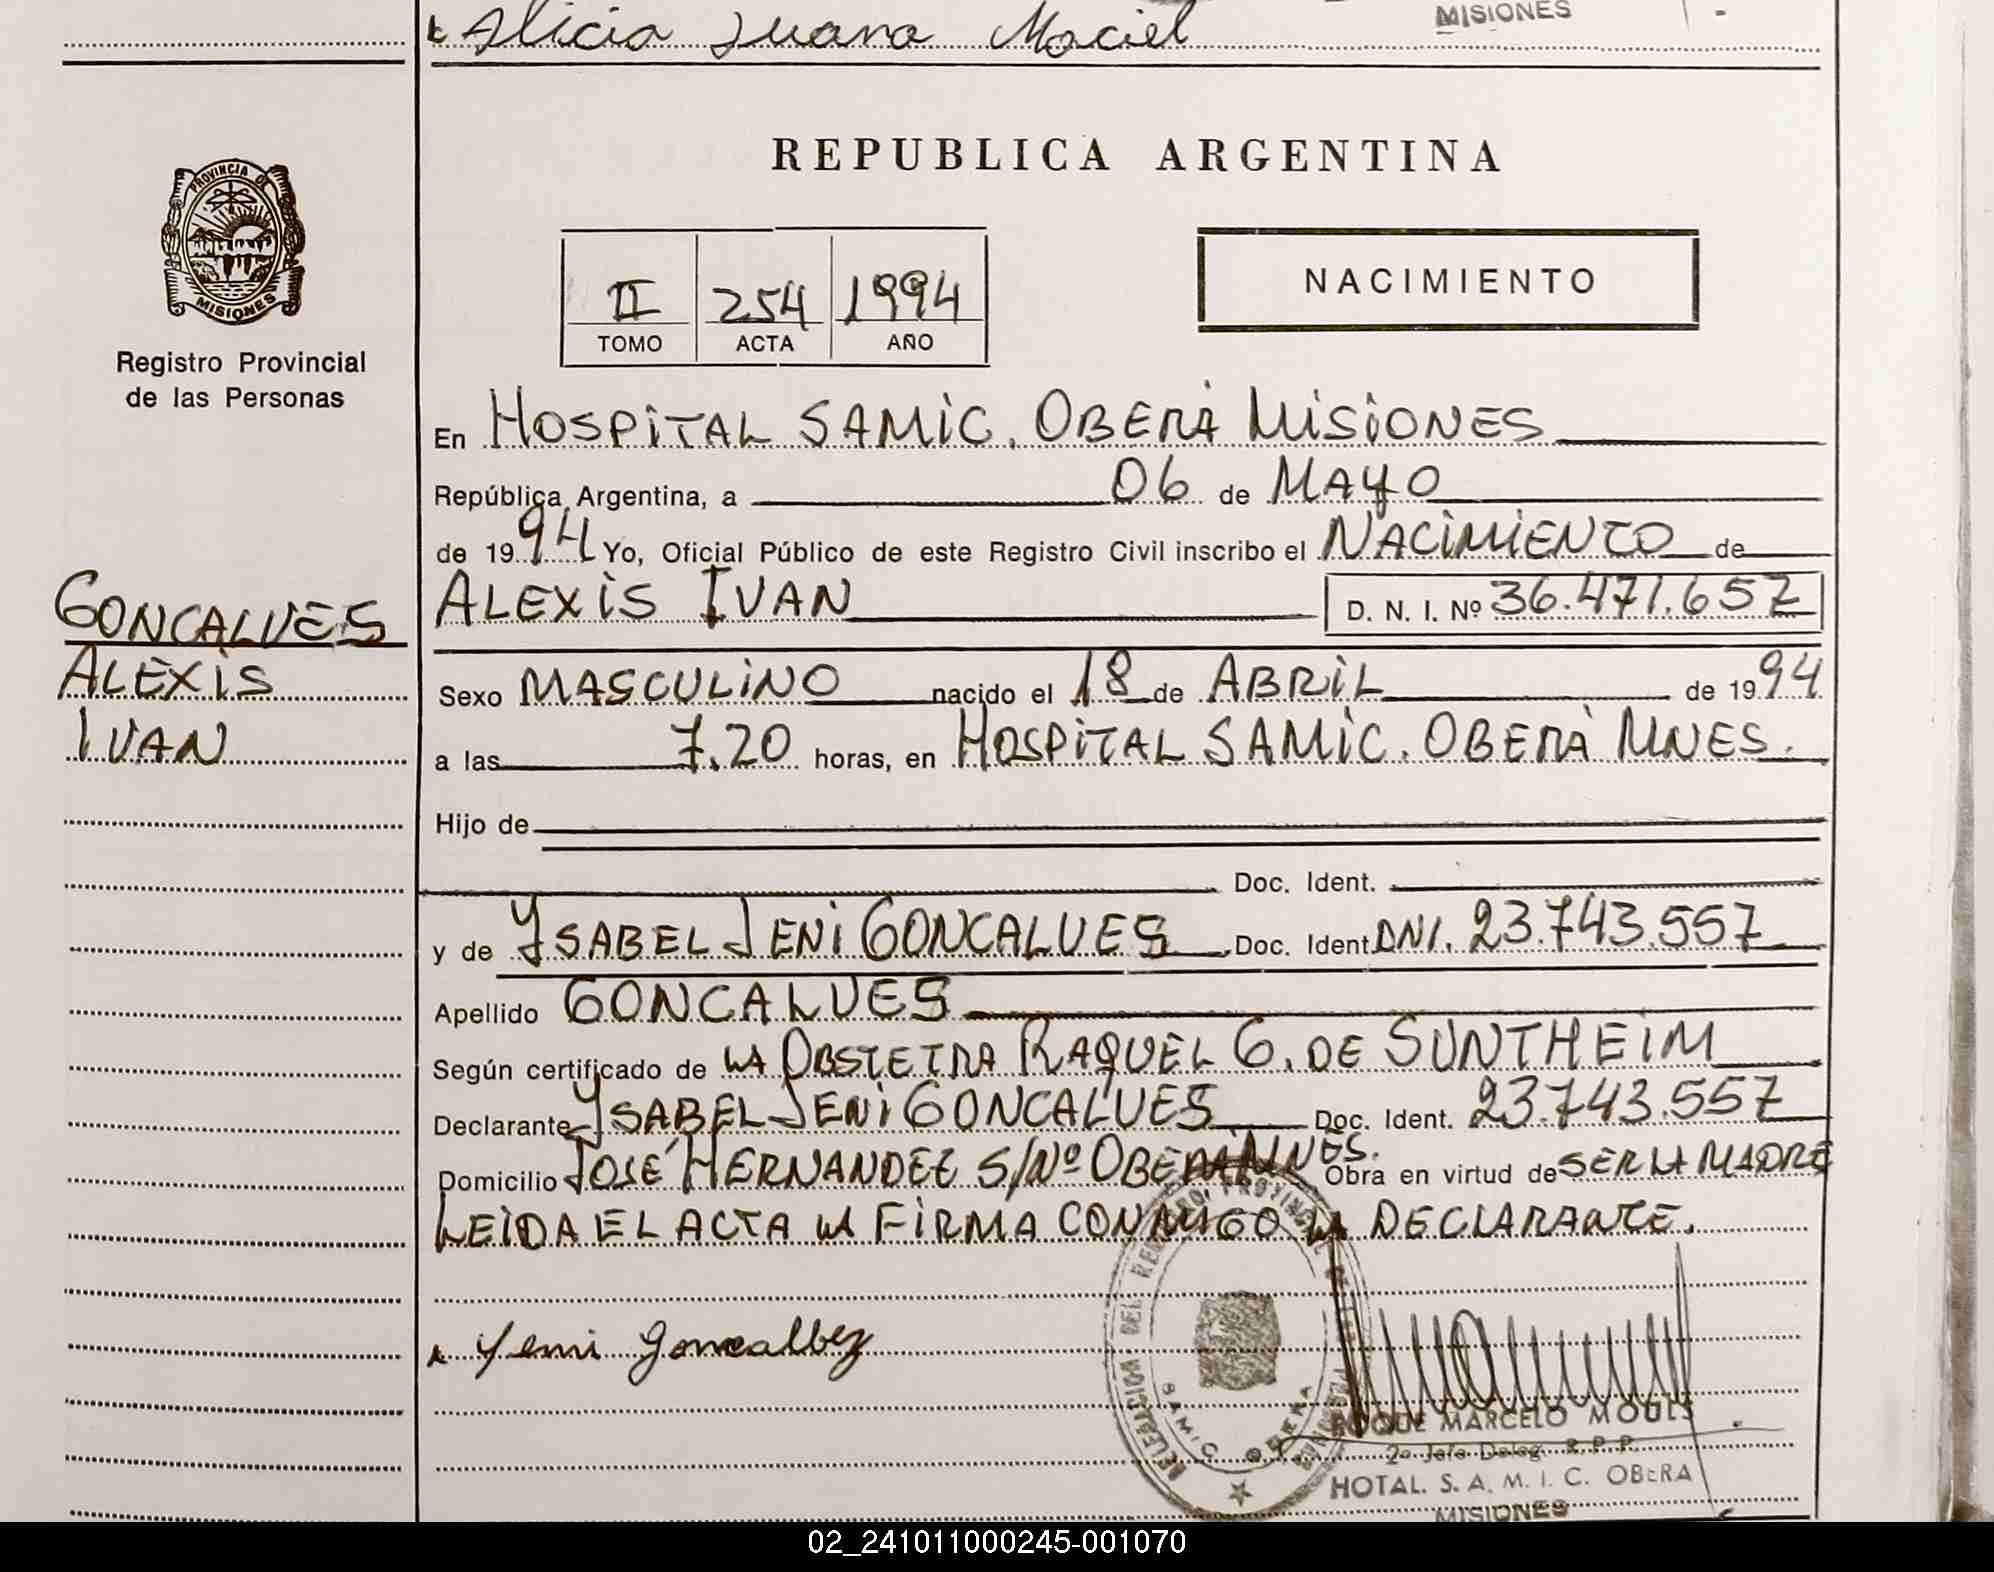 Alicia Juana Maciel
MISIONES
REPUBLICA ARGENTINA
PROVINCIA DE
MISIONES
Registro Provincial
de las Personas
II 254 1994
TOMO ACTA AÑO
NACIMIENTO
En HOSPITAL SAMIC. OBERÁ MISIONES
República Argentina, a 06 de MAYO
de 1994 Yo, Oficial Público de este Registro Civil inscribo el NACIMIENTO de
ALEXIS IVAN D. N. I. Nº 36.471.657
GONCALVES
ALEXIS
IVAN
Sexo MASCULINO nacido el 18 de ABRIL de 1994
a las 7.20 horas, en HOSPITAL SAMIC. OBERÁ MNES.
Hijo de
Doc. Ident.
y de YSABEL JENI GONCALVES Doc. Ident. DNI. 23.743.557
Apellido GONCALVES
Según certificado de LA OBSTETRA RAQUEL G. DE SUNTHEIM
Declarante YSABEL JENI GONCALVES Doc. Ident. 23.743.557
Domicilio JOSÉ HERNANDEZ S/Nº OBERA MNES. Obra en virtud de SER LA MADRE
LEIDA EL ACTA LA FIRMA CONMIGO LA DECLARANTE.
Yeni Goncalbez
DELEGACION DEL REGISTRO PROVINCIAL DE LAS PERSONAS
SAMIC OBERA
ROQUE MARCELO MOULS
2º Jefe Deleg. R.P.P.
HOTAL. S. A. M. I. C. OBERA
MISIONES
02_241011000245-001070